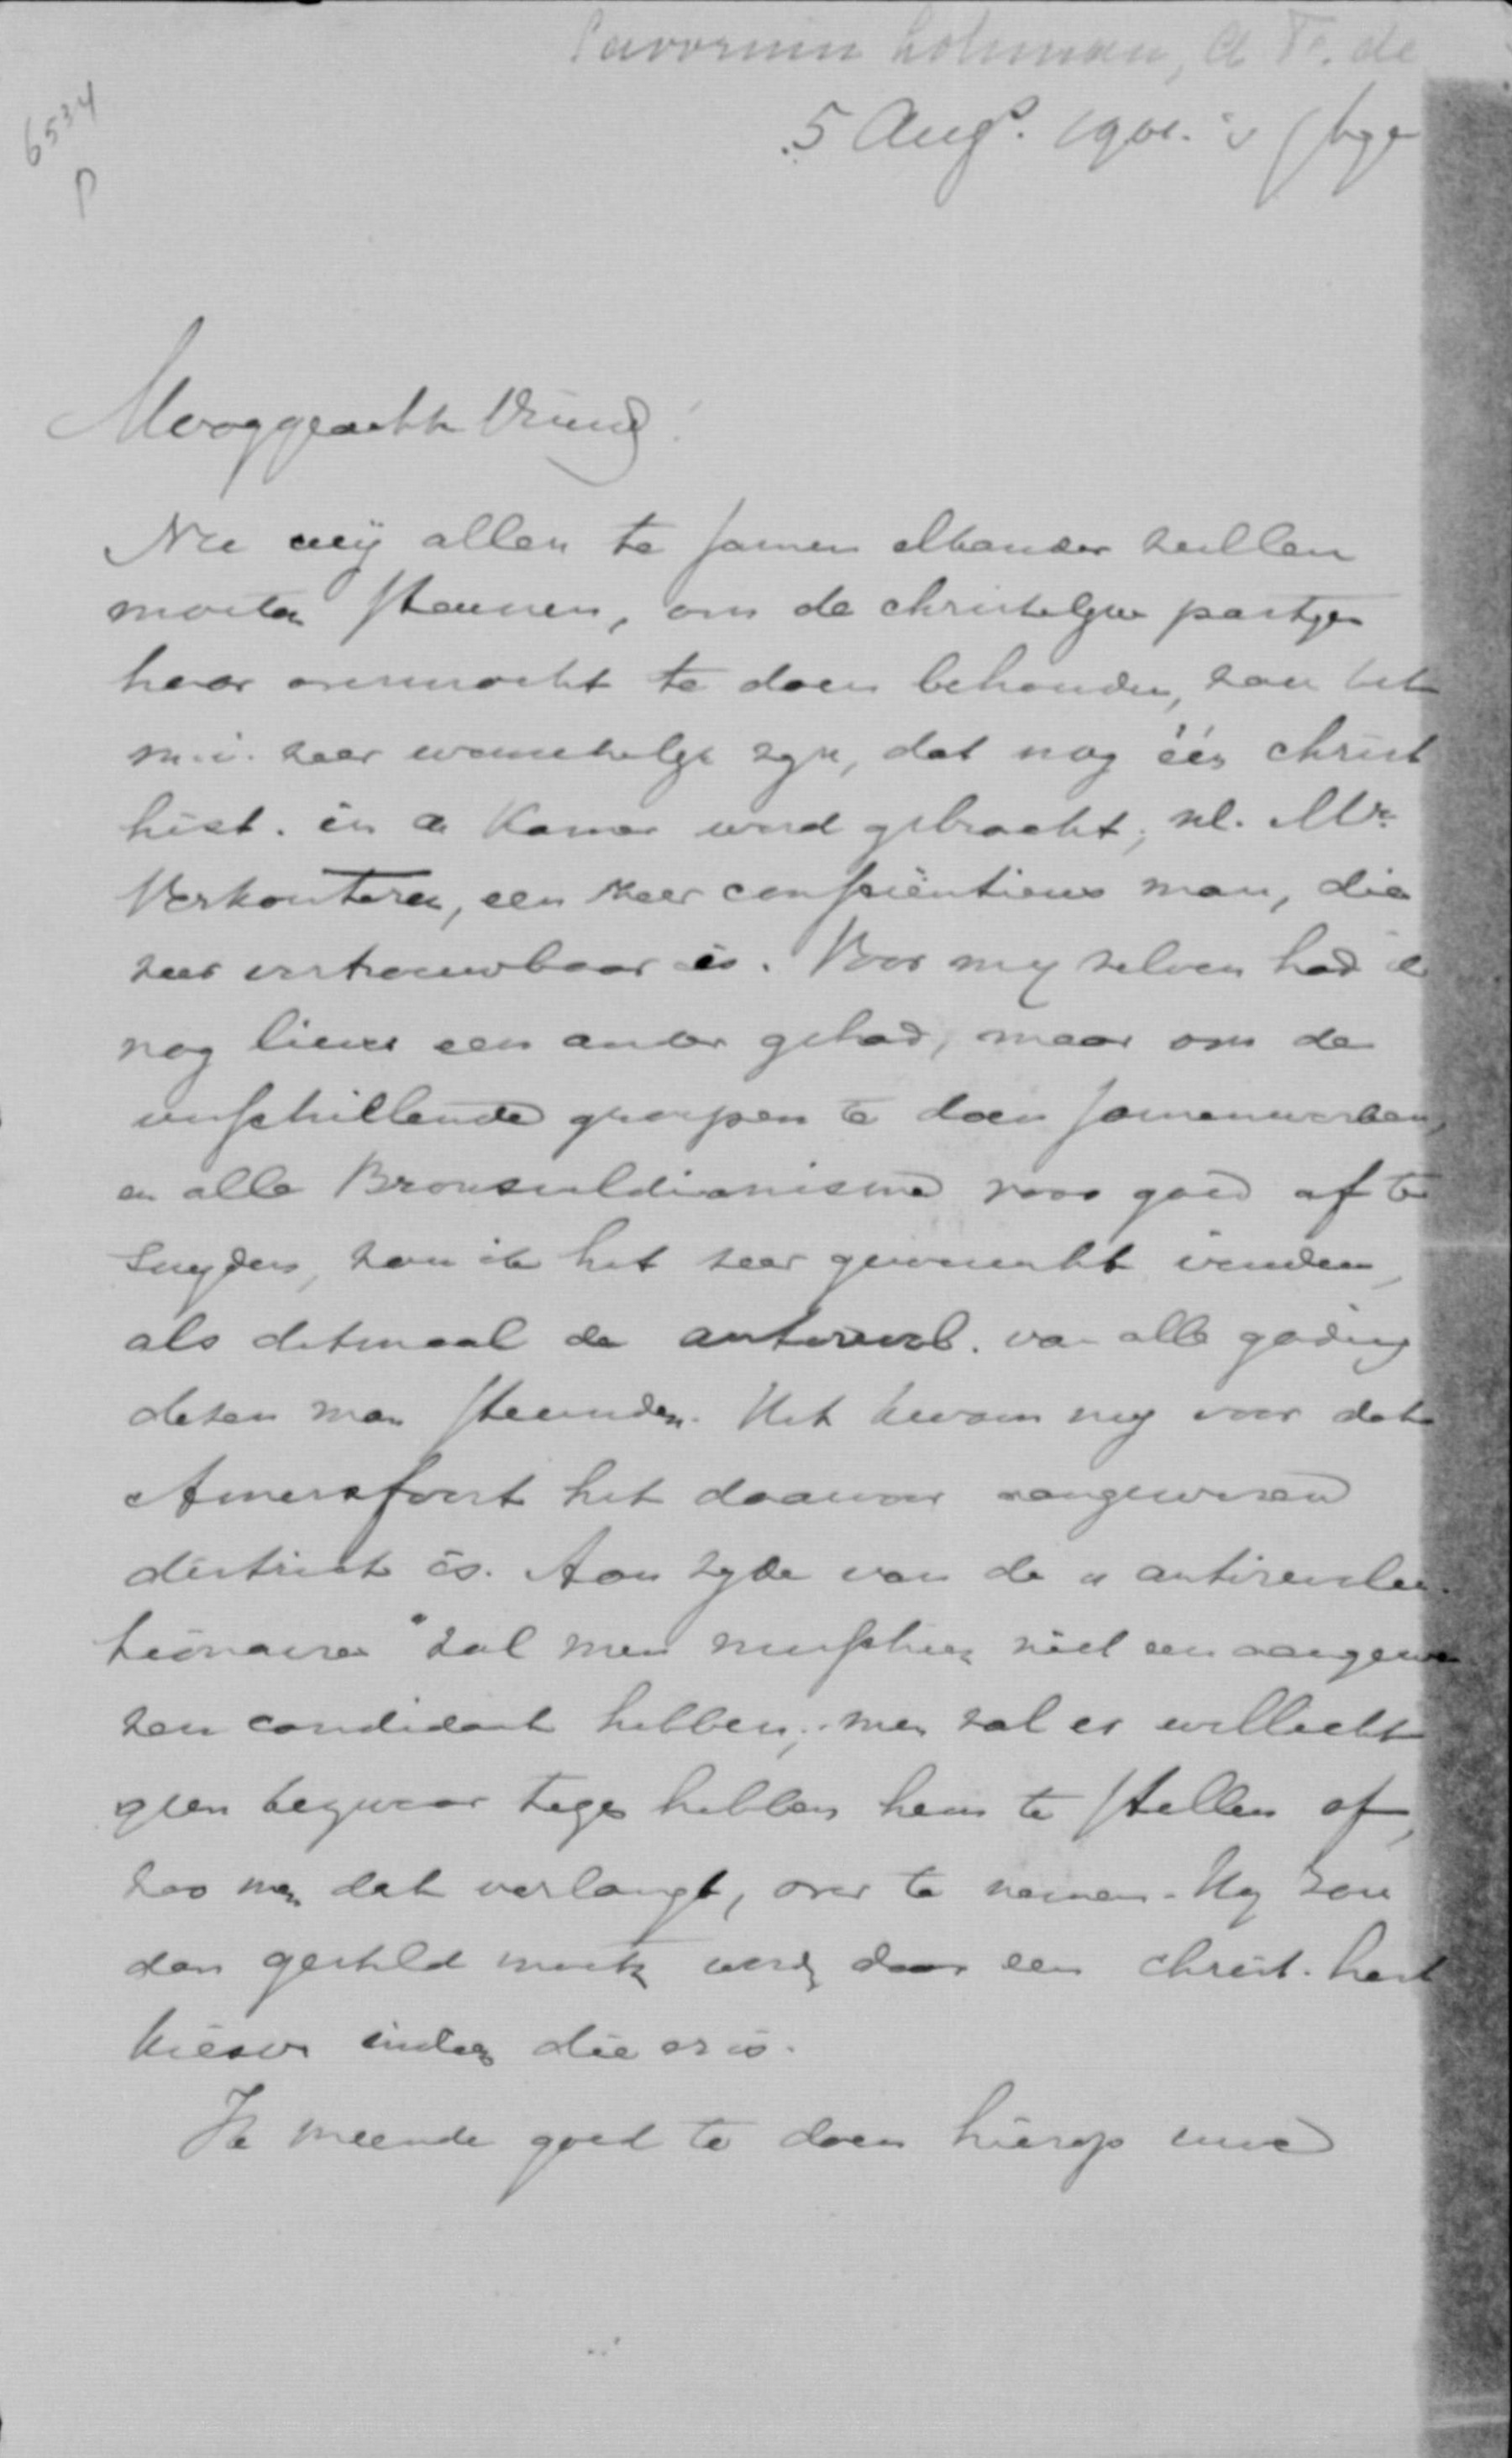 Savornin Lohman, A F. de
6534
P
5 Aug. 1901. 's Hage
Hooggeachte Vriend!
Nu wij allen te samen elkander zullen
moeten steunen, om de christelijke partijen
haar overmacht te doen behouden, zou het
m.i. zeer wenschelijk zijn, dat nog één christ
hist. in de Kamer werd gebracht; nl. Mr.
Verkouteren, een zeer consciëntieus man, die
zeer vertrouwbaar is. Voor mij zelven had ik
nog liever een ander gehad, maar om de
verschillende groepen te doen samenwerken,
en alle Bronsveldianisme voor goed af te
snijden, zou ik het zeer gewenscht vinden,
als ditmaal de antirevol. van alle gading
dezen man steunden. Het kwam mij voor dat
Amersfoort het daarvoor aangewezen
district is. Aan zijde van de "antirevolu-
tionairen" zal men misschien niet een aangewe
zen candidaat hebben; men zal er wellicht
geen bezwaar tegen hebben hem te stellen of,
zoo men dat verlangt, over te nemen. Hij zou
dan gesteld moeten worden door een christ. hist
kiesver indien die er is.
Ik meende goed te doen hierop uwe